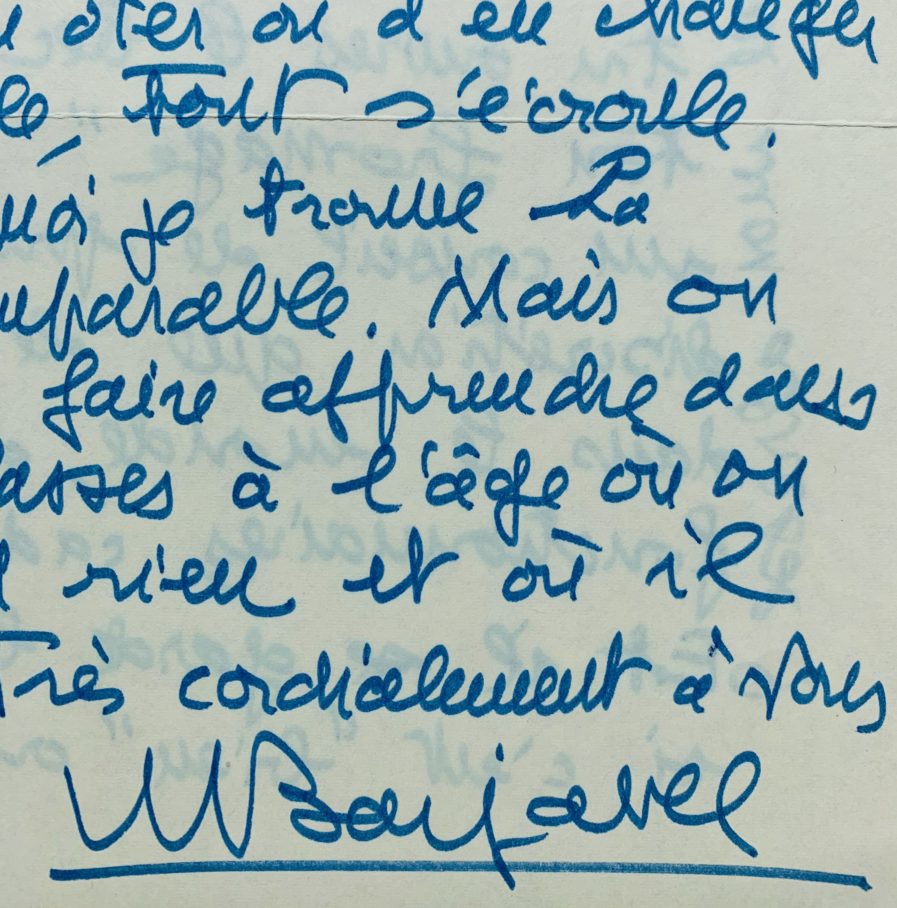 oter ou d'en changer
le, tout s'écroule.
uoi je trouve La
mparable. Mais on
faire apprendre dans
lasses à l'âge où on
rien et où il
Très cordialement à vous
Barjavel